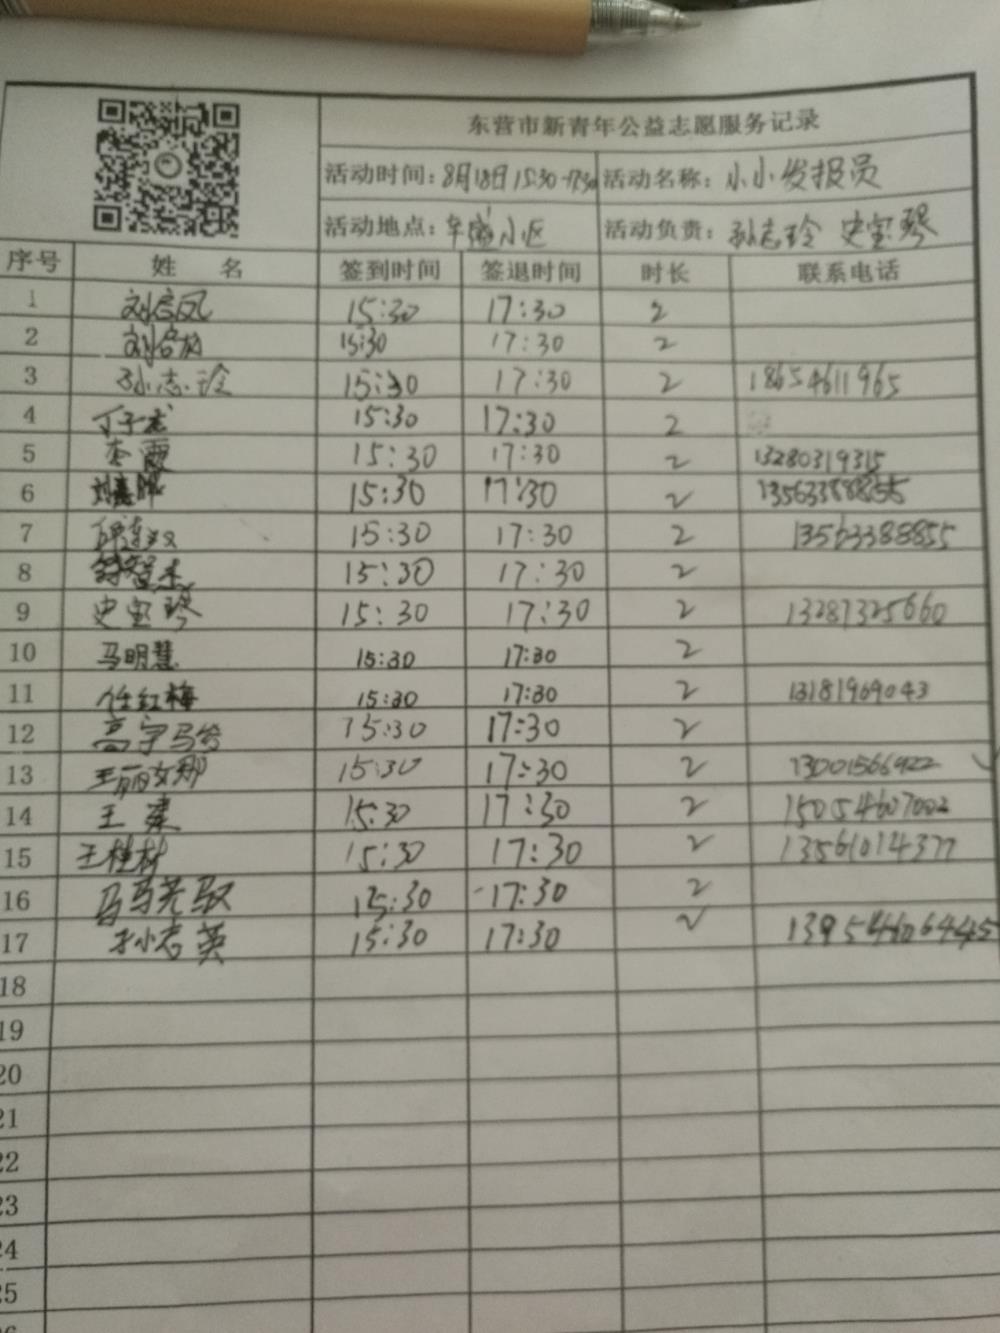 东营市新青年公益志愿服务记录
活动时间：8月18日 15:30-17:30 活动名称：小小发报员
活动地点：小区 活动负责：孙志玲 史宝琴
序号 姓 名 签到时间 签退时间 时长 联系电话
1 15:30 17:30 2
2 15:30 17:30 2
3 孙志玲 15:30 17:30 2 18654611965
4 15:30 17:30 2
5 李霞 15:30 17:30 2 13280319315
6 15:30 17:30 2 13563388855
7 15:30 17:30 2 13563388855
8 15:30 17:30 2
9 史宝琴 15:30 17:30 2 13287325660
10 马明慧 15:30 17:30 2
11 任红梅 15:30 17:30 2 13181969043
12 15:30 17:30 2
13 王丽娜 15:30 17:30 2 13001566922
14 王 15:30 17:30 2 15054607002
15 王桂林 15:30 17:30 2 13561014377
16 15:30 17:30 2
17 孙志英 15:30 17:30 2 13954606445
18
19
20
21
22
23
24
25